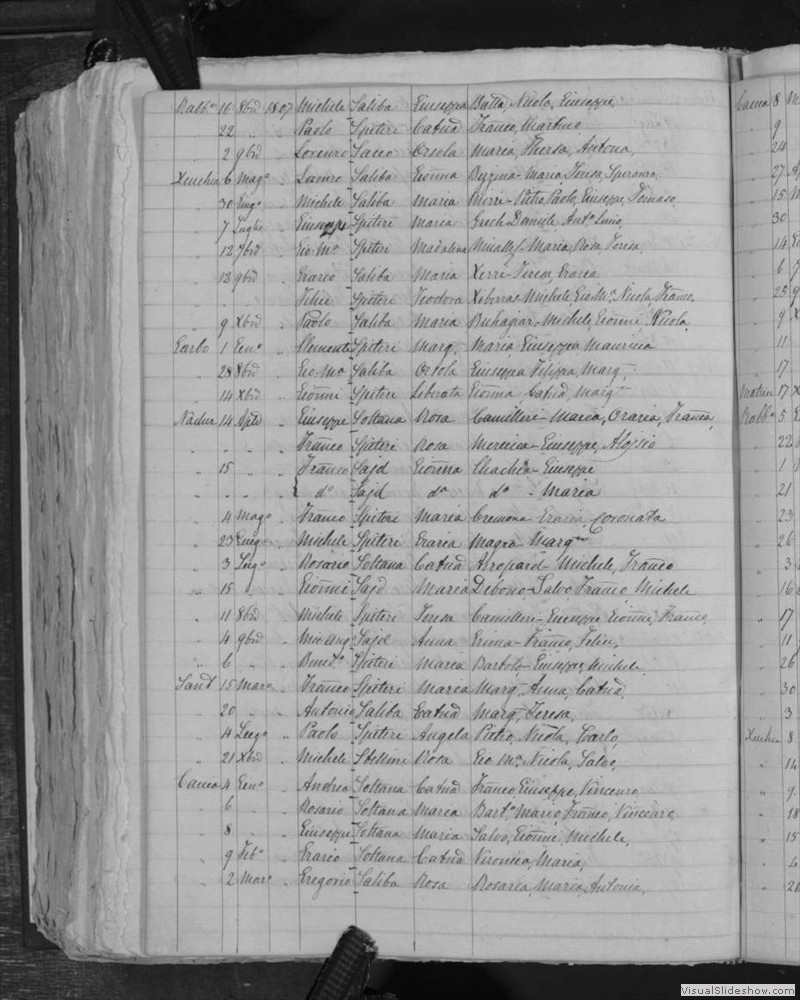 Rabbto 16 8brd 1807 Michele Saliba Giuseppa Batta, Nicola, Giuseppe
" 22 " " Paolo Spiteri Catnd Franco, Martino
" 2 9brd " Lorenzo Sacco Orsola Maria, Theresa, Antona,
Xeuchia 6 Mago " Saliba Gionna Maria, Teresa, Speranza,
" 30 Giugo " Michele Saliba Maria Pietro Paolo, Giuseppe, Tomaso,
" 7 Luglio " Giuseppe Spiteri Maria Grech Daniele, Anto
" 12 7brd " Gio. Ma Spiteri Madalena Micallef Maria, Rosa, Teresa,
" 12 9brd " Grazio Saliba Maria Xerri Teresa, Grazia
Felice Spiteri Teodora Xiberras Michele, Gio Ma, Nicola, Franco,
" 9 Xbrd " Paolo Saliba Maria Buhagiar Michele, Gionni, Nicola,
Garbo 1 Geno " Clemente Spiteri Marg, Maria Giuseppa
" 28 8brd " Gio. Ma Saliba Orsola Giuseppa Filippa, Marg,
" 14 Xbrd " Gionni Spiteri Liberata Gionna Catnd,
Nadur 14 Aple " Giuseppe Soltana Rosa Camilleri - Maria, Grazia, Franca,
" " " " Franco Spiteri Rosa Mercieca - Giuseppe, Aloisio
" 15 " Franco Said Gionna Chachia - Giuseppe
" " " do Said do do - Maria
" 4 Mago " Franco Spiteri Maria Cremona - Grazia, Coronata
" 23 Giugo " Michele Spiteri Grazia Magro -
" 3 Lugo " Rosario Soltana Catnd Attopard - Michele, Franco
" 15 " Gionni Said Maria Debono - Salvo Franco Michele
" 11 8brd " Michele Spiteri Teresa Camilleri - Giuseppe Gionni, Franco,
" 4 9brd " Mic Ang Said Anna Grima - Franco, Felice,
" 6 " " Spiteri Maria Bartolo - Giuseppe, Michele
Sant 15 Maro " Franco Spiteri Maria Marg, Anna, Catnd,
" 20 " " Antonio Saliba Catnd Marg, Teresa,
" 4 Lugo " Paolo Spiteri Angela Pietro, Nicola, Carlo,
" 21 Xbrd " Michele Rosa Gio Ma, Nicola, Salvo,
Caccia 4 Geno " Andrea Soltana Catnd Franco, Giuseppe, Vincenzo,
" 6 " Rosario Soltana Maria Barto, Mario, Franco, Vincenzo
" 8 " " Giuseppe Soltana Maria Salvo, Gionni Michele,
" 9 Febo " Grazio Soltana Catnd Maria,
" 2 Maro " Gregorio Saliba Rosa Rosaria, Maria, Antonia,
Caccia 8
" 9
24
" 27
" 15
" 30
" 14
" 6
" 25
" 9
" 11
" 17
17
Rabbto 5
" 22
" 1
" 21
" 23
" 26
" 3
" 16
" 17
" 11
" 26
" 30
" 3
Xeuchia 8
" 14
" 9
" 18
" 15
" 4
" 20
VisualSlideshow.com